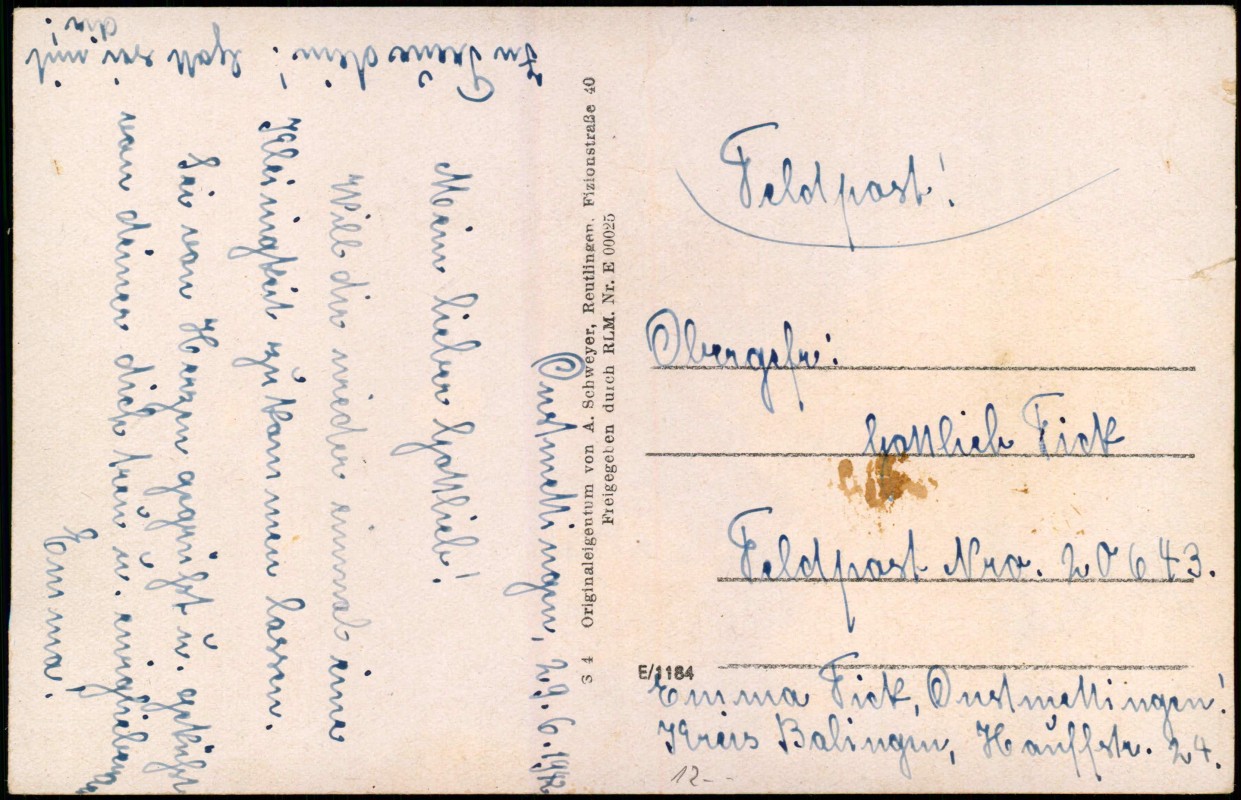 Onstmettingen, 29.6.1942
Mein lieber Gottlieb!
Will dir wieder einmal eine
Kleinigkeit zukommen lassen.
Sei von Herzen gegrüßt u. geküßt
von deiner dich treu u. innigliebenden
Emma!
In Treue dein! Gott sei mit
dir!
3 4 Originaleigentum von A. Schweyer, Reutlingen. Fizionstraße 40
Freigegeben durch RLM. Nr. E 00025
Feldpost!
Obergefr:
Gottlieb Fick
Feldpost Nro. 20643.
E/1184
Emma Fick, Onstmettingen!
Kreis Balingen, Hauffstr. 24.
12--